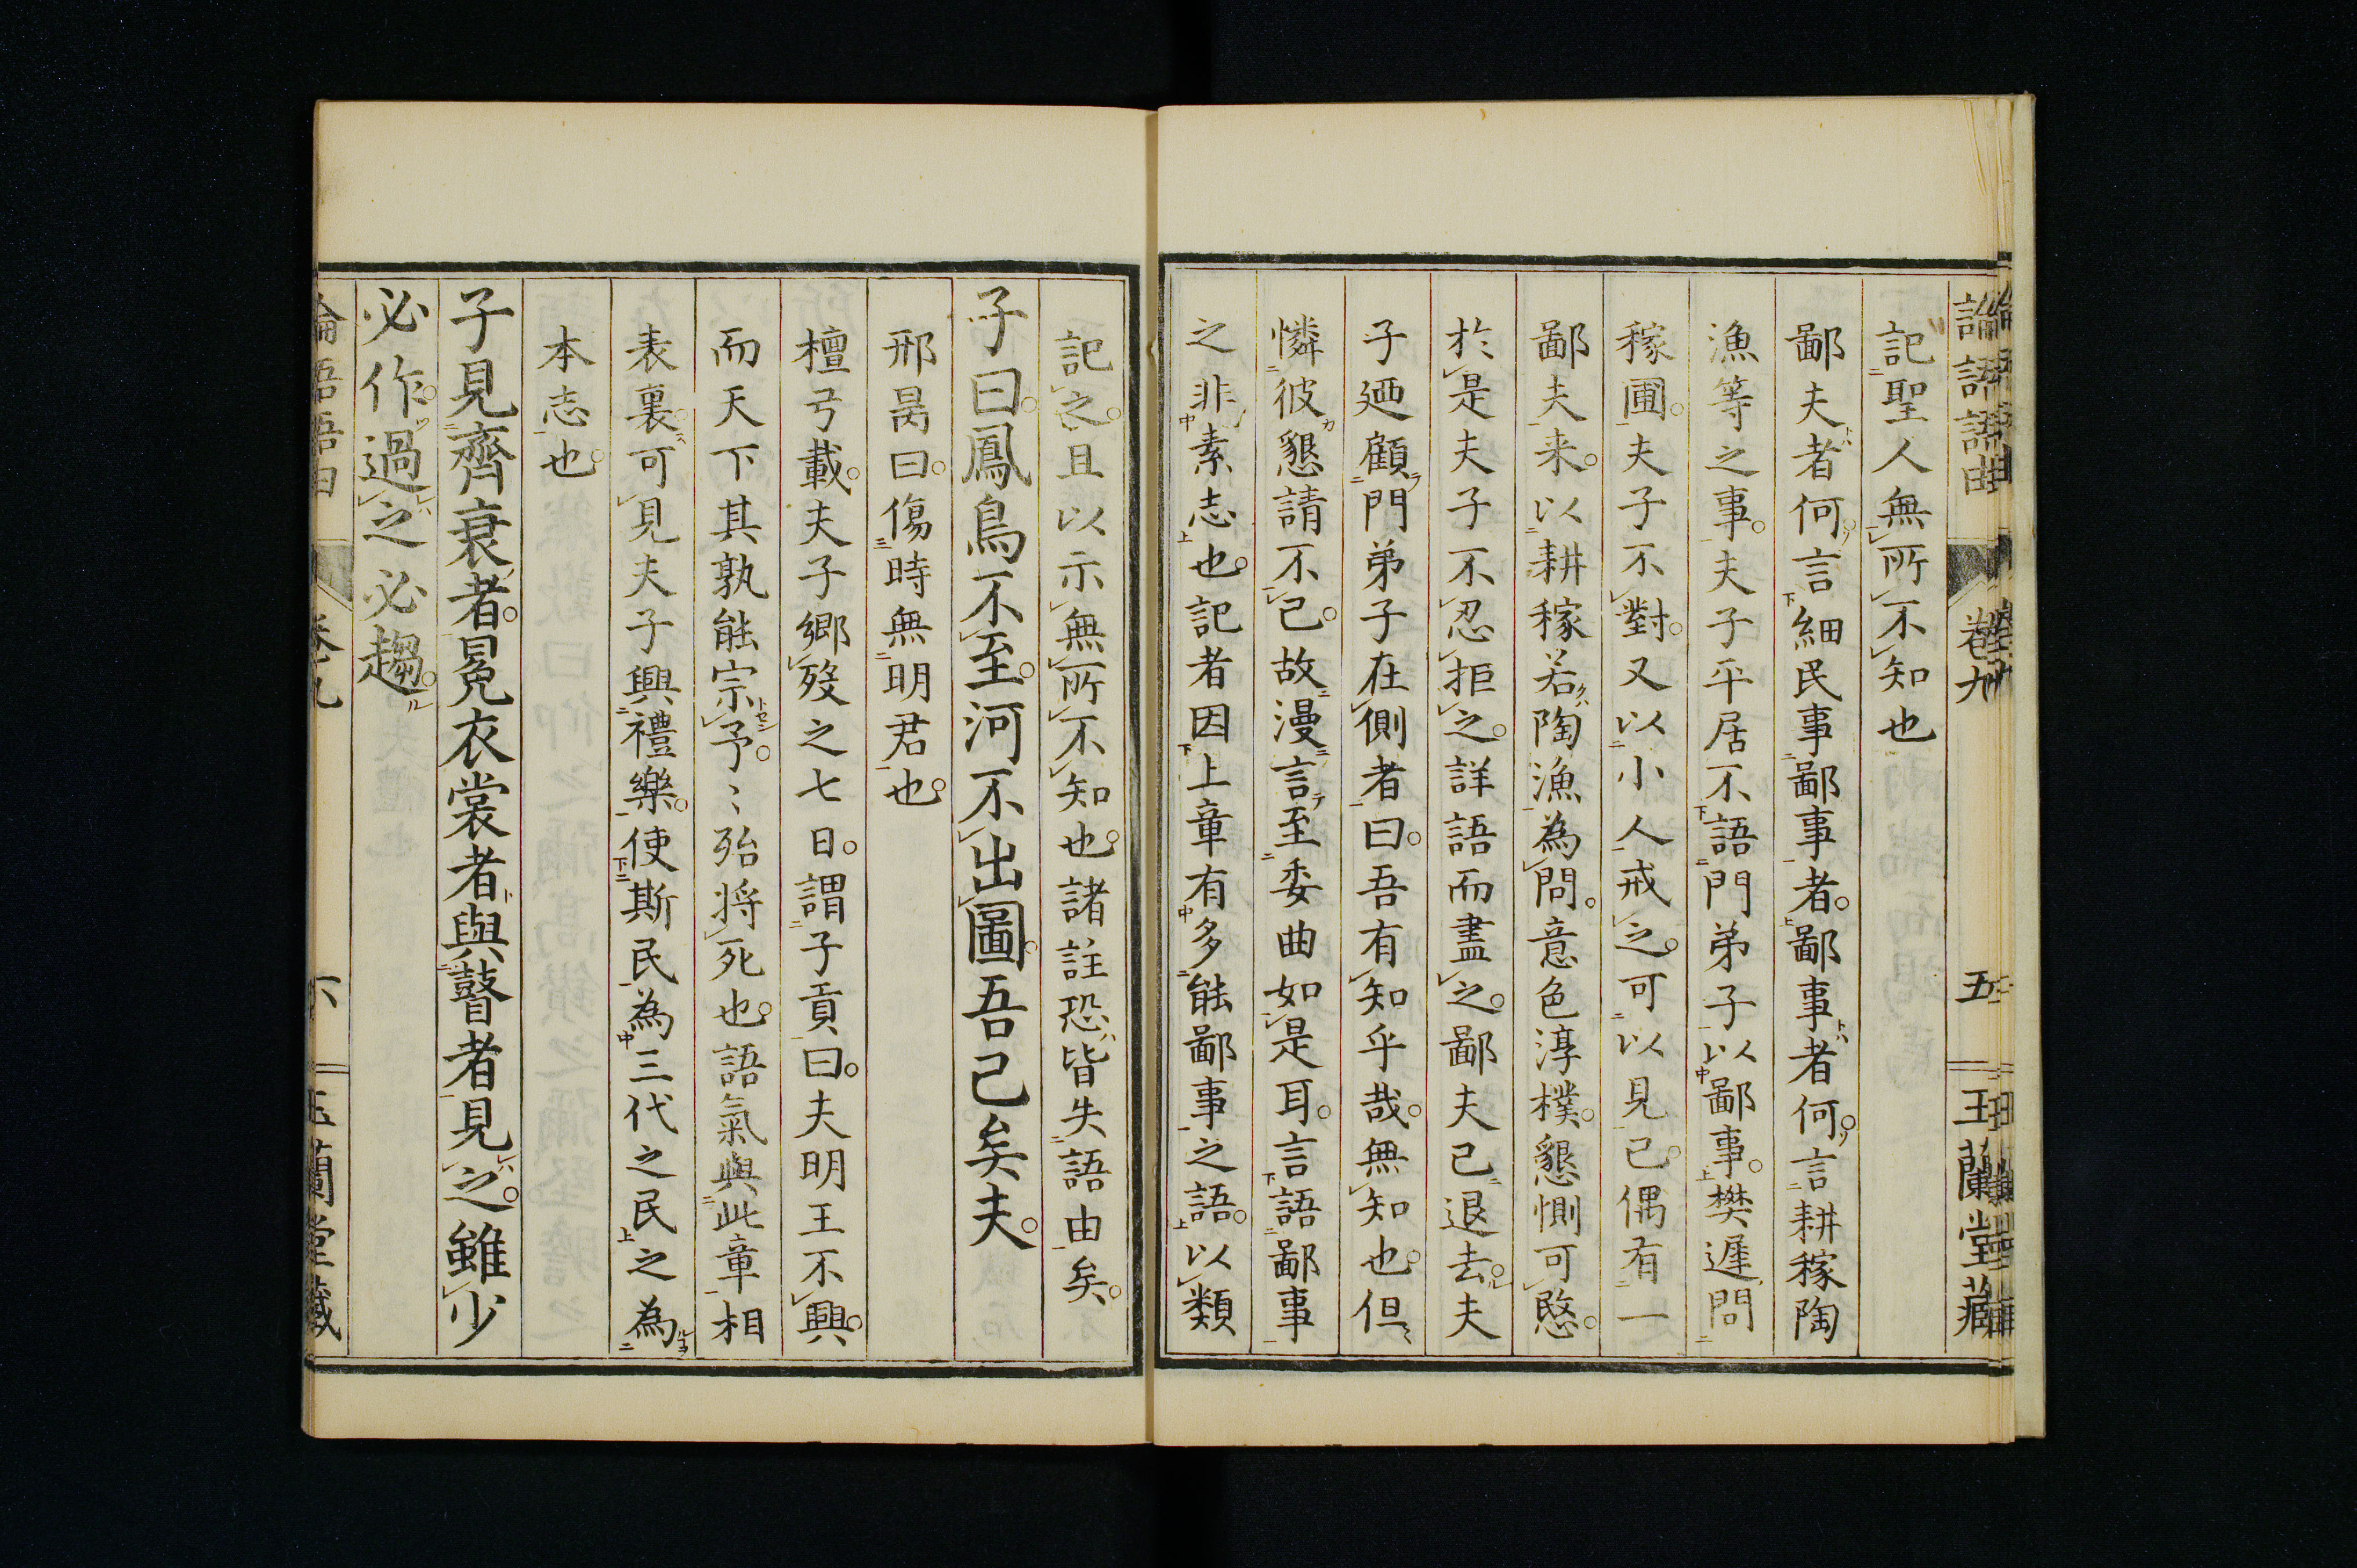 論語語由 卷九 五 玉蘭堂藏
記聖人無所不知也
鄙夫者何言細民事鄙事者鄙事者何言耕稼陶
漁等之事夫子平居不語門弟子以鄙事樊遲問
稼圃夫子不對又以小人戒之可以見已偶有一
鄙夫来以耕稼若陶漁為問意色淳樸懇惻可愍
於是夫子不忍拒之詳語而盡之鄙夫已退去夫
子廼顧門弟子在側者曰吾有知乎哉無知也但
憐彼懇請不已故漫言至委曲如是耳言語鄙事
之非素志也記者因上章有多能鄙事之語以類
記之且以示無所不知也諸註恐皆失語由矣
子曰鳳鳥不至河不出圖吾已矣夫
邢昺曰傷時無明君也
檀弓載夫子鄉殁之七日謂子貢曰夫明王不興
而天下其孰能宗予〻殆将死也語氣與此章相
表裏可見夫子興禮樂使斯民為三代之民之為
本志也
子見齊衰者冕衣裳者與瞽者見之雖少
必作過之必趨
論語語由 卷九 六 玉蘭堂藏